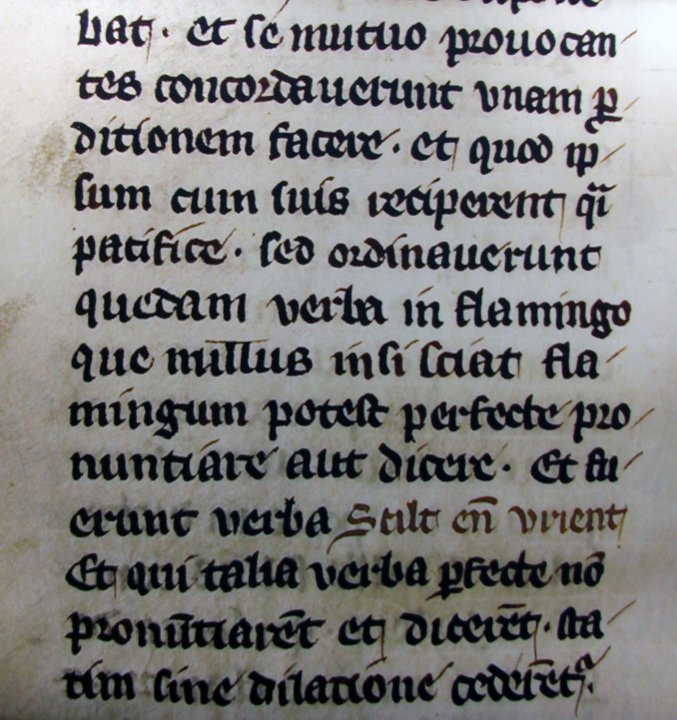 bat. et se mutuo prouocan
tes concordauerunt vnam p̱
ditionem facere. et quod ip̄
sum cum suis reciperent q̄i
pacifice. sed ordinauerunt
quedam verba in flamingo
que nullus insi sciat fla
mingum potest perfecte pro
nuntiare aut dicere. Et fu
erunt verba Scilt en̄ vrient
Et qui talia verba ꝑfecte nō
pronūtiarēt et dicerēt. sta
tim sine dilatione cederēt.